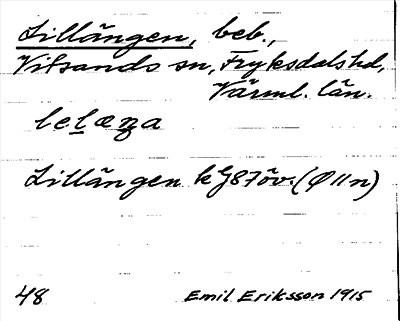 Lillängen, beb.,
Vitsands sn, Fryksdals hd,
Värml. län.
Lillängen kG87öv. (Ø11n)
48 Emil Eriksson 1915